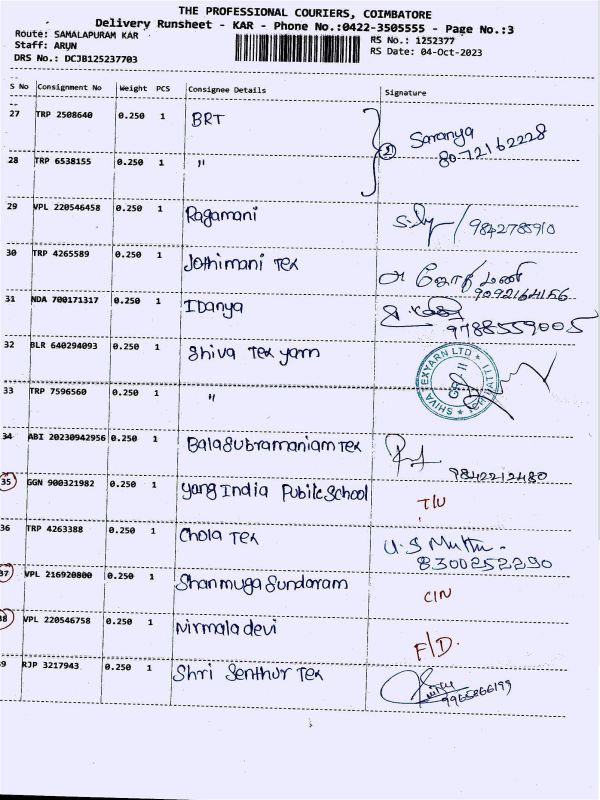 THE PROFESSIONAL COURIERS, COIMBATORE
Delivery Runsheet - KAR - Phone No.:0422-3505555 - Page No.:3
Route: SAMALAPURAM KAR
RS No.: 1252377
Staff: ARUN
RS Date: 04-Oct-2023
DRS No.: DCJB125237703
S No Consignment No Weight PCS Consignee Details Signature
27 TRP 2508640 0.250 1 BRT
Saranya
8072162228
28 TRP 6538155 0.250 1 "
29 VPL 220546458 0.250 1 Ragamani 9842785910
30 TRP 4265589 0.250 1 Jothimani Tex அ ஜோதிமணி
9092164156
31 NDA 700171317 0.250 1 Idanya
9788559005
32 BLR 640294093 0.250 1 Shiva Tex yarn
SHIVA TEXYARN LTD
33 TRP 7596560 0.250 1 "
34 ABI 20230942956 0.250 1 Balasubramaniam Tex
9842212480
35 GGN 900321982 0.250 1 yang India Public School T/U
36 TRP 4263388 0.250 1 Chola Tex U.S Muthu.
8300252290
37 VPL 216920800 0.250 1 Shanmuga Sundaram CIN
38 VPL 220546758 0.250 1 Nirmala devi F/D.
39 RJP 3217943 0.250 1 Shri Senthur Tex
9965266199